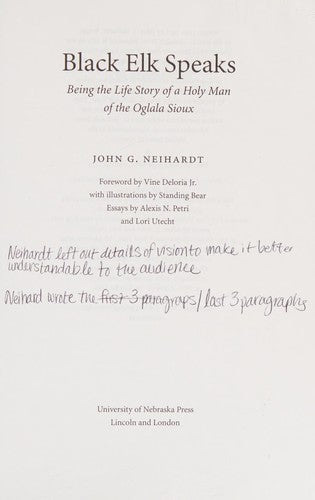 Black Elk Speaks
Being the Life Story of a Holy Man
of the Oglala Sioux
JOHN G. NEIHARDT
Foreword by Vine Deloria Jr.
with illustrations by Standing Bear
Essays by Alexis N. Petri
and Lori Utecht
Neihardt left out details of vision to make it better
understandable to the audience
Neihard wrote the first 3 paragraps / last 3 paragraphs
University of Nebraska Press
Lincoln and London